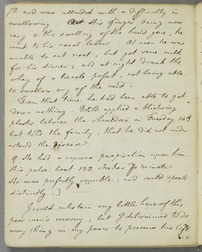 7th and was attended with a difficulty in
swallowing. His finger being now
easy & the swelling of the hand gone, he
went to his usual labour. At noon he was
unable to eat meat, but got some with
for his dinner; and at night drank the
whey of a treacle posset, not being able
to swallow any of the curd.
From that time he had been able to get
down nothing. Well applied a blistering
plaster between the shoulders on Friday 14th
but told the family, that he did not under-
stand the disease.
He had a copious perspiration upon him.
His pulse beat 122 strokes per minute.
He was perfectly sensible, and could speak
distinctly.]
I could entertain very little hope of this
poor man's recovery, but I determined to do
every thing in my power to preserve his life